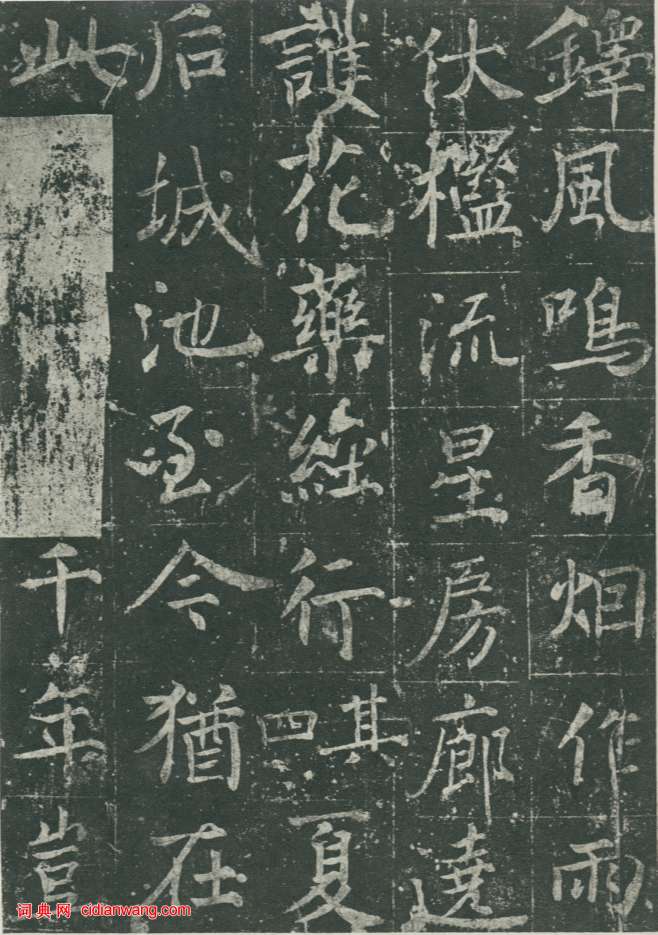 鐸風鳴香烟作雨
伏檻流星房廊遶
護花藥經行其四夏
后城池至今猶在
此千年豈
词典网 cidianwang.com